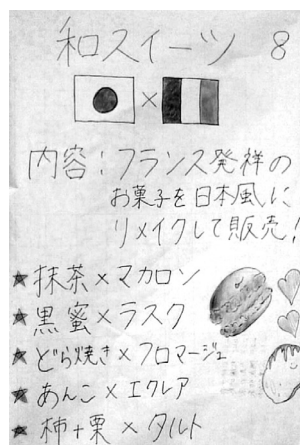 和スイーツ 8
×
内容：フランス発祥の
お菓子を日本風に
リメイクして販売！
★抹茶×マカロン
★黒蜜×ラスク
★どら焼き×フロマージュ
★あんこ×エクレア
★柿+栗×タルト